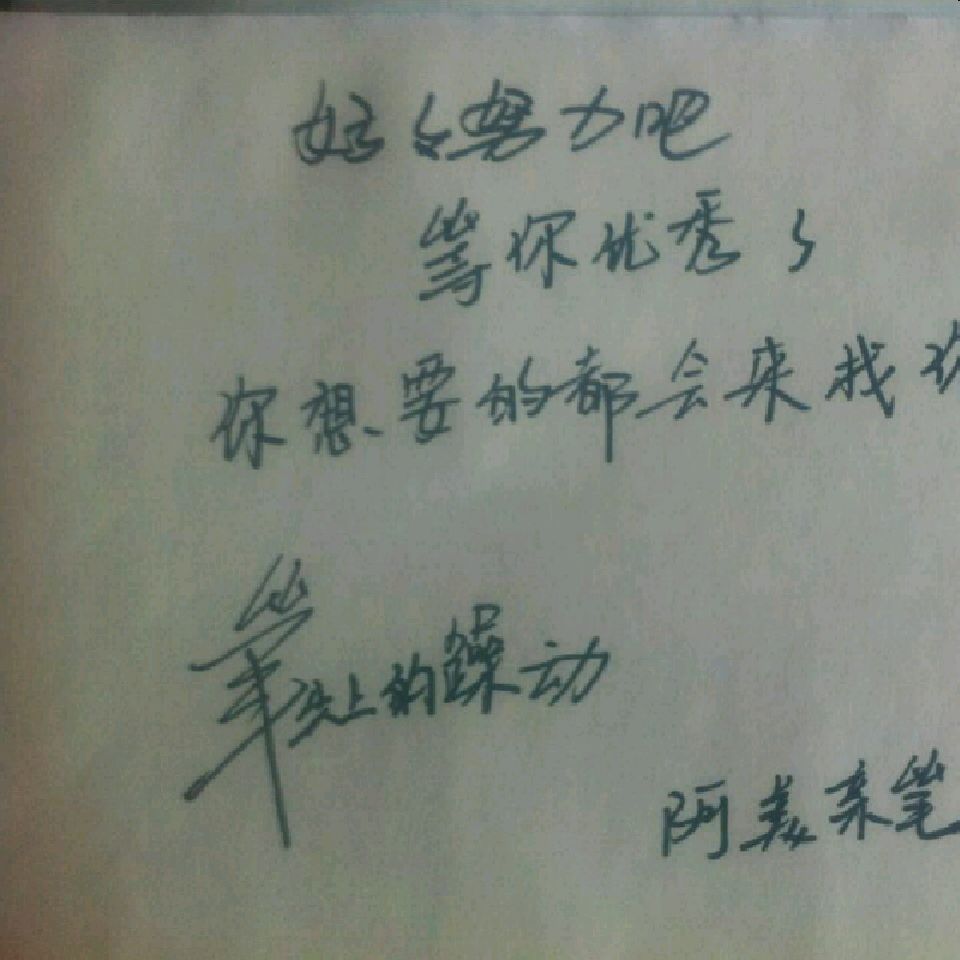 好好努力吧
等你优秀了
你想要的都会来找你
笔尖上的躁动
阿美亲笔